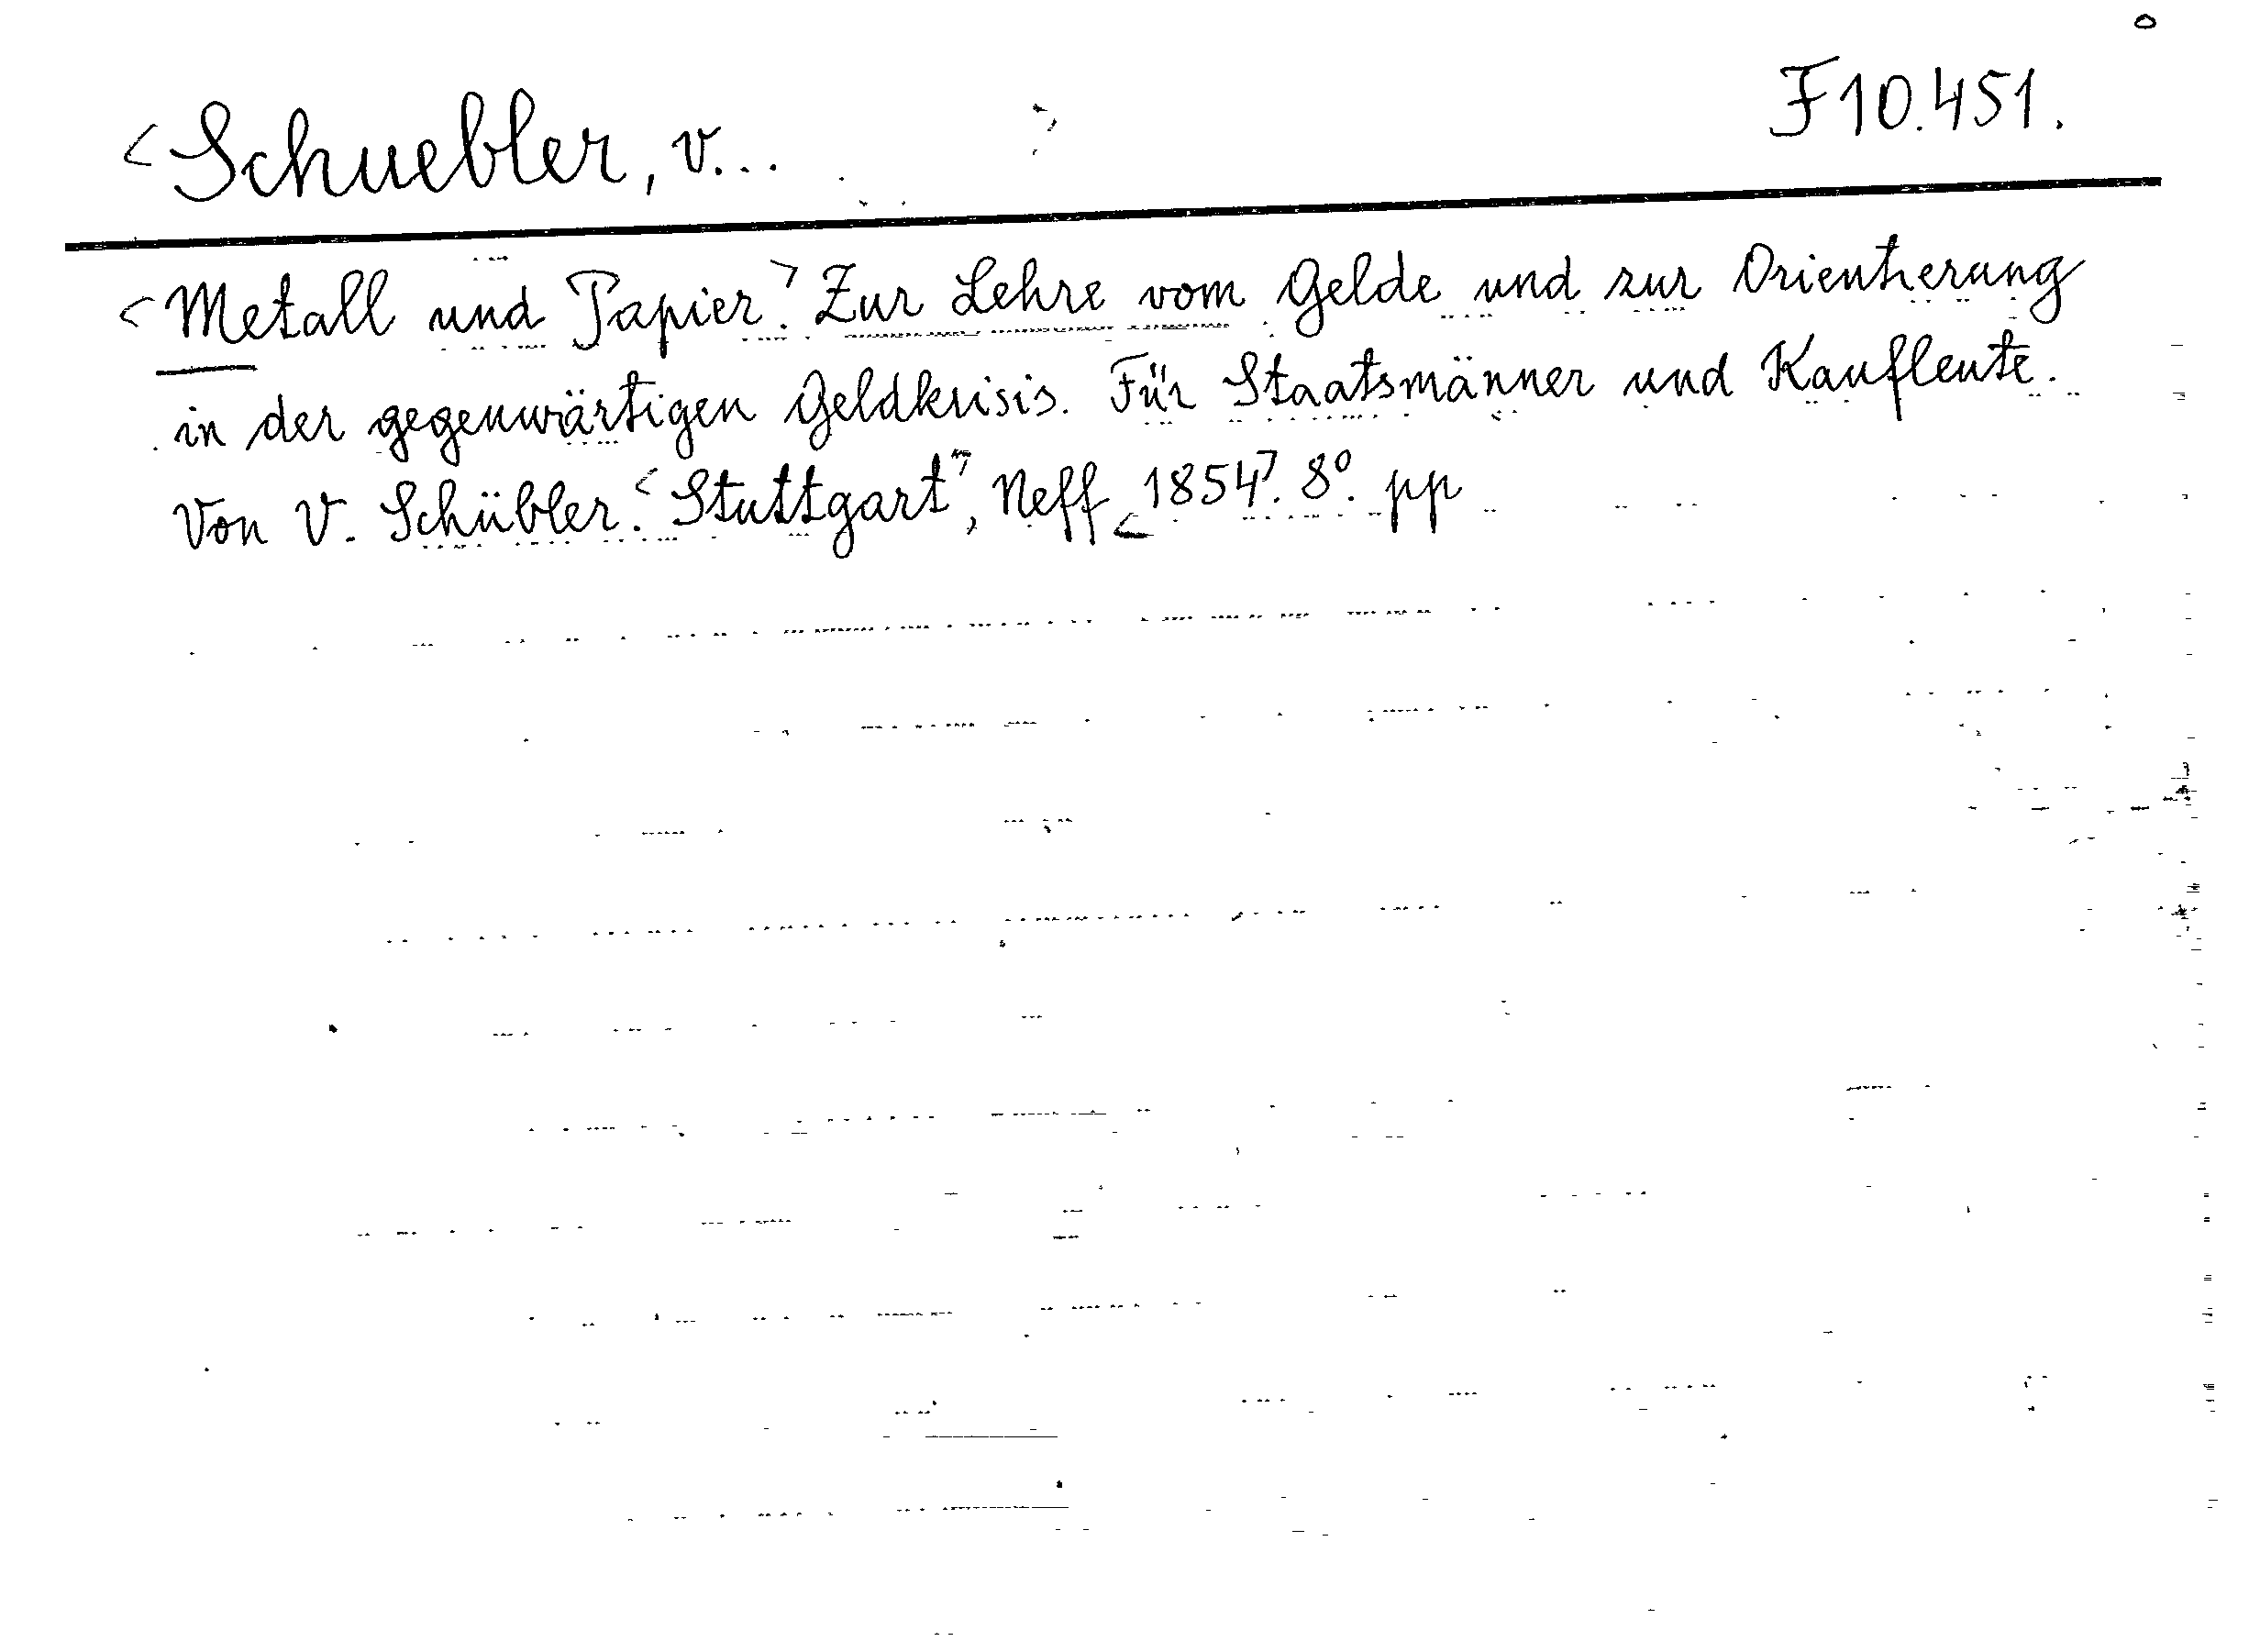 <Schuebler, v... >
F 10.451.
<Metall und Papier.> Zur Lehre vom Gelde und zur Orientierung
in der gegenwärtigen Geldkrisis. Für Staatsmänner und Kaufleute.
Von V. Schübler. <Stuttgart>, Neff <1854>. 8°. pp